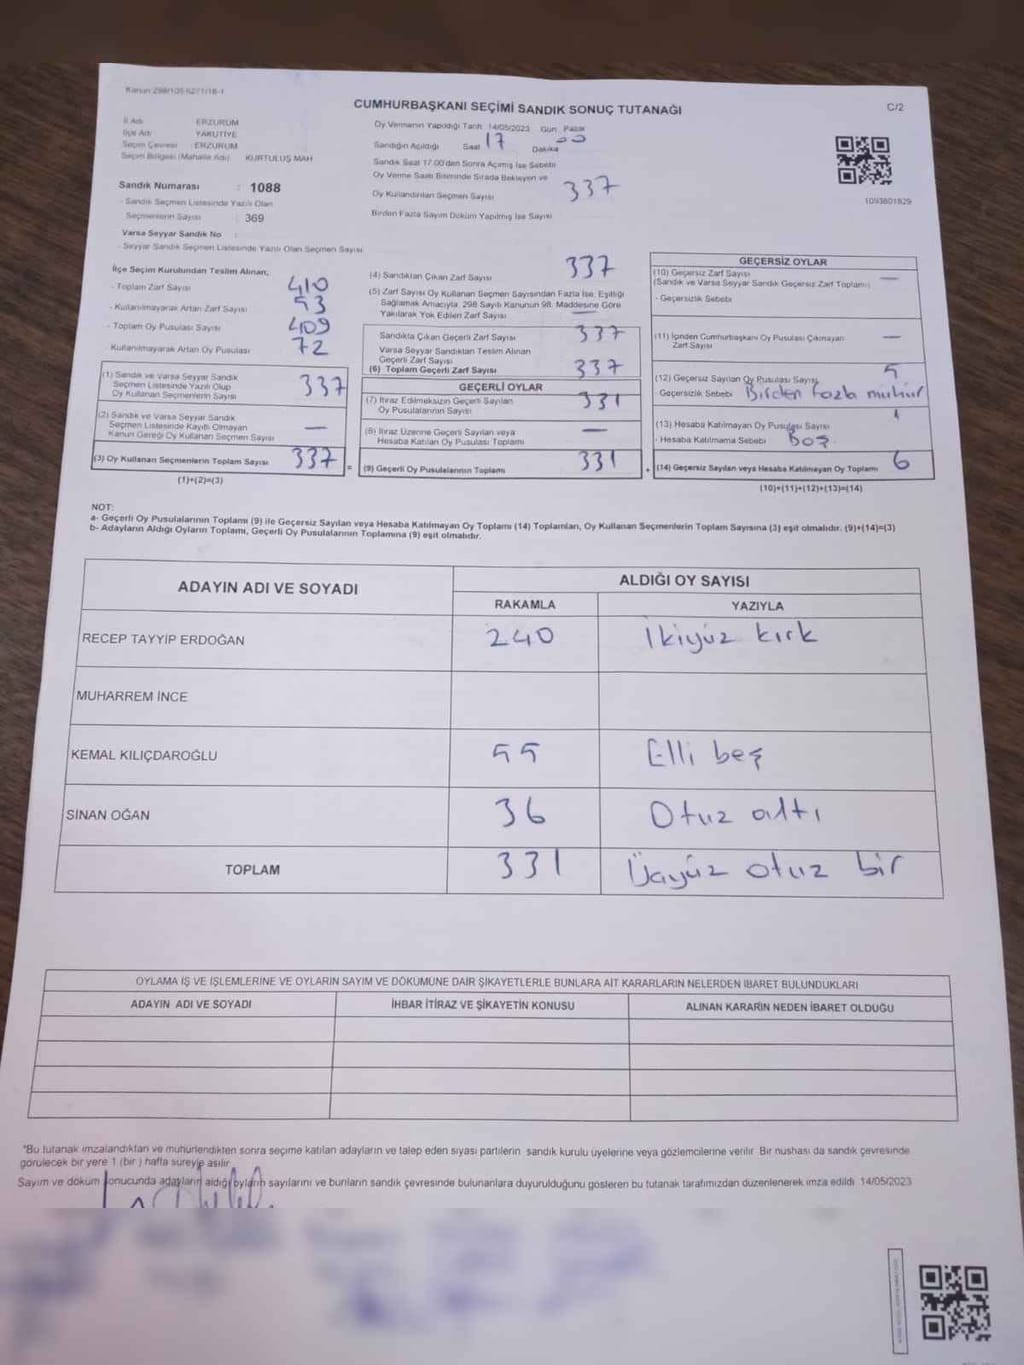 Kanun 298/105-6271/18-1
CUMHURBAŞKANI SEÇİMİ SANDIK SONUÇ TUTANAĞI
C/2
İl Adı : ERZURUM
İlçe Adı : YAKUTİYE
Seçim Çevresi : ERZURUM
Seçim Bölgesi (Mahalle Adı) : KURTULUŞ MAH
Sandık Numarası : 1088
- Sandık Seçmen Listesinde Yazılı Olan
Seçmenlerin Sayısı : 369
Varsa Seyyar Sandık No :
- Seyyar Sandık Seçmen Listesinde Yazılı Olan Seçmen Sayısı
Oy Vermenin Yapıldığı Tarih 14/05/2023 Gün Pazar
Sandığın Açıldığı Saat 17 Dakika 00
Sandık Saat 17.00'den Sonra Açımış İse Sebebi
Oy Verme Saati Bitiminde Sırada Bekleyen ve
Oy Kullandırılan Seçmen Sayısı 337
Birden Fazla Sayım Döküm Yapılmış İse Sayısı
1093801829
İlçe Seçim Kurulundan Teslim Alınan;
- Toplam Zarf Sayısı 410
- Kullanılmayarak Artan Zarf Sayısı 53
- Toplam Oy Pusulası Sayısı 409
- Kullanılmayarak Artan Oy Pusulası 72
(1) Sandık ve Varsa Seyyar Sandık
Seçmen Listesinde Yazılı Olup
Oy Kullanan Seçmenlerin Sayısı 337
(2) Sandık ve Varsa Seyyar Sandık
Seçmen Listesinde Kayıtlı Olmayan
Kanun Gereği Oy Kullanan Seçmen Sayısı —
(3) Oy Kullanan Seçmenlerin Toplam Sayısı 337
(1)+(2)=(3)
=
(4) Sandıktan Çıkan Zarf Sayısı 337
(5) Zarf Sayısı Oy Kullanan Seçmen Sayısından Fazla İse, Eşitliği
Sağlamak Amacıyla, 298 Sayılı Kanunun 98. Maddesine Göre
Yakılarak Yok Edilen Zarf Sayısı —
Sandıkta Çıkan Geçerli Zarf Sayısı 337
Varsa Seyyar Sandıktan Teslim Alınan
Geçerli Zarf Sayısı
(6) Toplam Geçerli Zarf Sayısı 337
GEÇERLİ OYLAR
(7) İtiraz Edilmeksizin Geçerli Sayılan
Oy Pusulalarının Sayısı 331
(8) İtiraz Üzerine Geçerli Sayılan veya
Hesaba Katılan Oy Pusulası Toplamı —
(9) Geçerli Oy Pusulalarının Toplamı 331
+
GEÇERSİZ OYLAR
(10) Geçersiz Zarf Sayısı —
(Sandık ve Varsa Seyyar Sandık Geçersiz Zarf Toplamı)
- Geçersizlik Sebebi
(11) İçinden Cumhurbaşkanı Oy Pusulası Çıkmayan
Zarf Sayısı —
(12) Geçersiz Sayılan Oy Pusulası Sayısı 5
Geçersizlik Sebebi Birden fazla mühür
(13) Hesaba Katılmayan Oy Pusulası Sayısı 1
- Hesaba Katılmama Sebebi Boş
(14) Geçersiz Sayılan veya Hesaba Katılmayan Oy Toplamı 6
(10)+(11)+(12)+(13)=(14)
NOT:
a- Geçerli Oy Pusulalarının Toplamı (9) ile Geçersiz Sayılan veya Hesaba Katılmayan Oy Toplamı (14) Toplamları, Oy Kullanan Seçmenlerin Toplam Sayısına (3) eşit olmalıdır. (9)+(14)=(3)
b- Adayların Aldığı Oyların Toplamı, Geçerli Oy Pusulalarının Toplamına (9) eşit olmalıdır.
ADAYIN ADI VE SOYADI
ALDIĞI OY SAYISI
RAKAMLA YAZIYLA
RECEP TAYYİP ERDOĞAN 240 İkiyüz kırk
MUHARREM İNCE
KEMAL KILIÇDAROĞLU 55 Elli beş
SİNAN OĞAN 36 Otuz altı
TOPLAM 331 Üçyüz otuz bir
OYLAMA İŞ VE İŞLEMLERİNE VE OYLARIN SAYIM VE DÖKÜMÜNE DAİR ŞİKAYETLERLE BUNLARA AİT KARARLARIN NELERDEN İBARET BULUNDUKLARI
ADAYIN ADI VE SOYADI İHBAR İTİRAZ VE ŞİKAYETİN KONUSU ALINAN KARARIN NEDEN İBARET OLDUĞU
*Bu tutanak imzalandıktan ve mühürlendikten sonra seçime katılan adayların ve talep eden siyasi partilerin sandık kurulu üyelerine veya gözlemcilerine verilir. Bir nüshası da sandık çevresinde
görülecek bir yere 1 (bir ) hafta süreyle asılır.
Sayım ve döküm sonucunda adayların aldığı oyların sayılarını ve bunların sandık çevresinde bulunanlara duyurulduğunu gösteren bu tutanak tarafımızdan düzenlenerek imza edildi. 14/05/2023